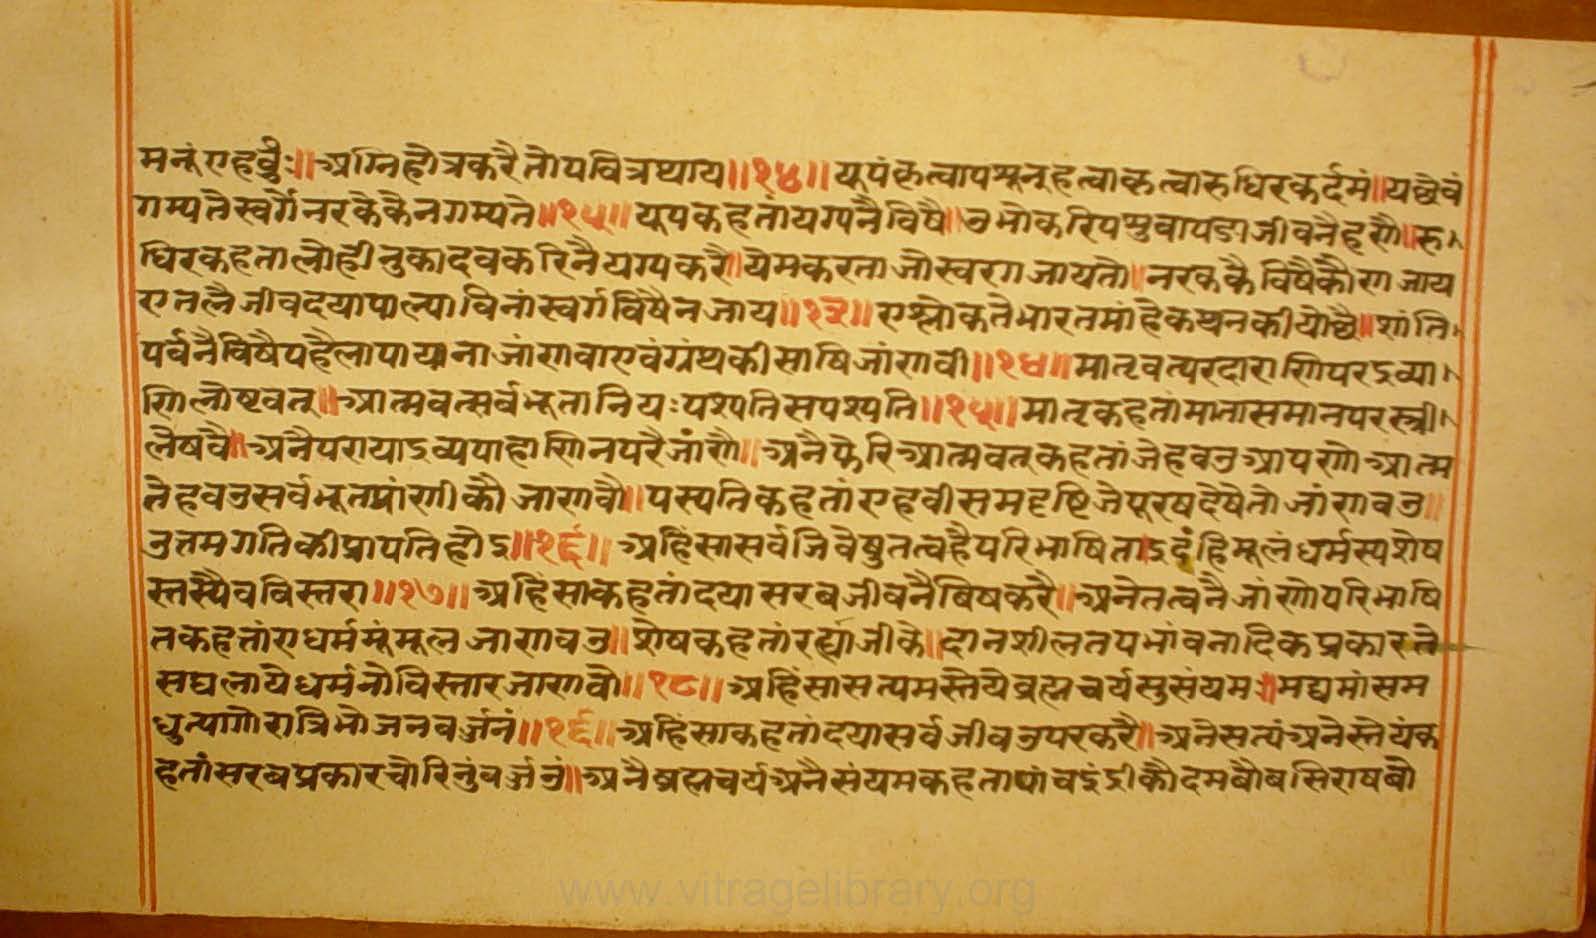 मनूं एहवुंः॥ अग्निहोत्रकरैतोपवित्रथाय॥१४॥ यूपंकृत्वापशूनूहत्वाकृत्वारुधिरकर्दमं॥यद्येवं
गम्यतेस्वर्गेनरकेकैनगम्यते॥१५॥ यूपकहतांयग्यनैविषै॥उभोकरिपशुवापडाजीवनैहणै॥रु
धिरकहतालोहीनुकादवकरिनैयग्यकरै॥येमकरताजोस्वरगजायतो॥नरककैविषैकौणजाय
एतलैजीवदयापाल्याविनांस्वर्गविषैनजाय॥१३॥ एश्लोकतेभारतमांहेकथनकीयोछै॥शांति
पर्वनैविषैपहैलापायानाजांणवाएवंग्रंथकीसाषिजांणवी॥१४॥ मातृवत्परदाराणिपरद्रव्या
णिलोष्टवत्॥आत्मवत्सर्वभूतानियःपश्यतिसपश्यति॥१५॥ मातृकहतांमातासमानपरस्त्री
लेषवै॥अनैपरायाद्रव्यपाहाणिनपरैजांणै॥अनैफेरिआत्मवत्कहतांजेहवउआपणोआत्म
तेहवउसर्वभूतप्रांणीकौजाणवौ॥पस्यतिकहतांएहवीसमदृष्टिजेपूरषदेषैतोजांणवउ॥
उतमगतिकीप्रापतिहोइ॥१६॥ अहिंसासर्वजिवेषुतत्वहैपरिभाषिताइदंहिमूलंधर्मस्यशेष
स्तस्यैवविस्तरा॥१७॥ अहिसाकहतांदयासरबजीवनैबिषकरै॥अनेतत्वनैजांणोपरिभाषि
तकहतांएधर्ममूंमूलजाणवउ॥शेषकहतांरह्योजीके॥दानशीलतपभांवनादिकप्रकारते
सघलायेधर्मनोविस्तारजाणवो॥१८॥ अहिंसासत्यमस्तेयेब्रह्मचर्यसुसंयम॥मद्यमांसम
धुत्यागोरात्रिभोजनबर्ज्जनं॥१६॥ अहिंसाकहतांदयासर्वजीवउपरकरै॥अनेसत्यंअनेस्तेयंक
हतांसरबप्रकारचोरिनुंबर्ज्जनुं॥अनैब्रह्मचर्यअनैसंयमकहतापांचइंद्रीकौदमबौबसिराषबौ
www.vitragelibrary.org